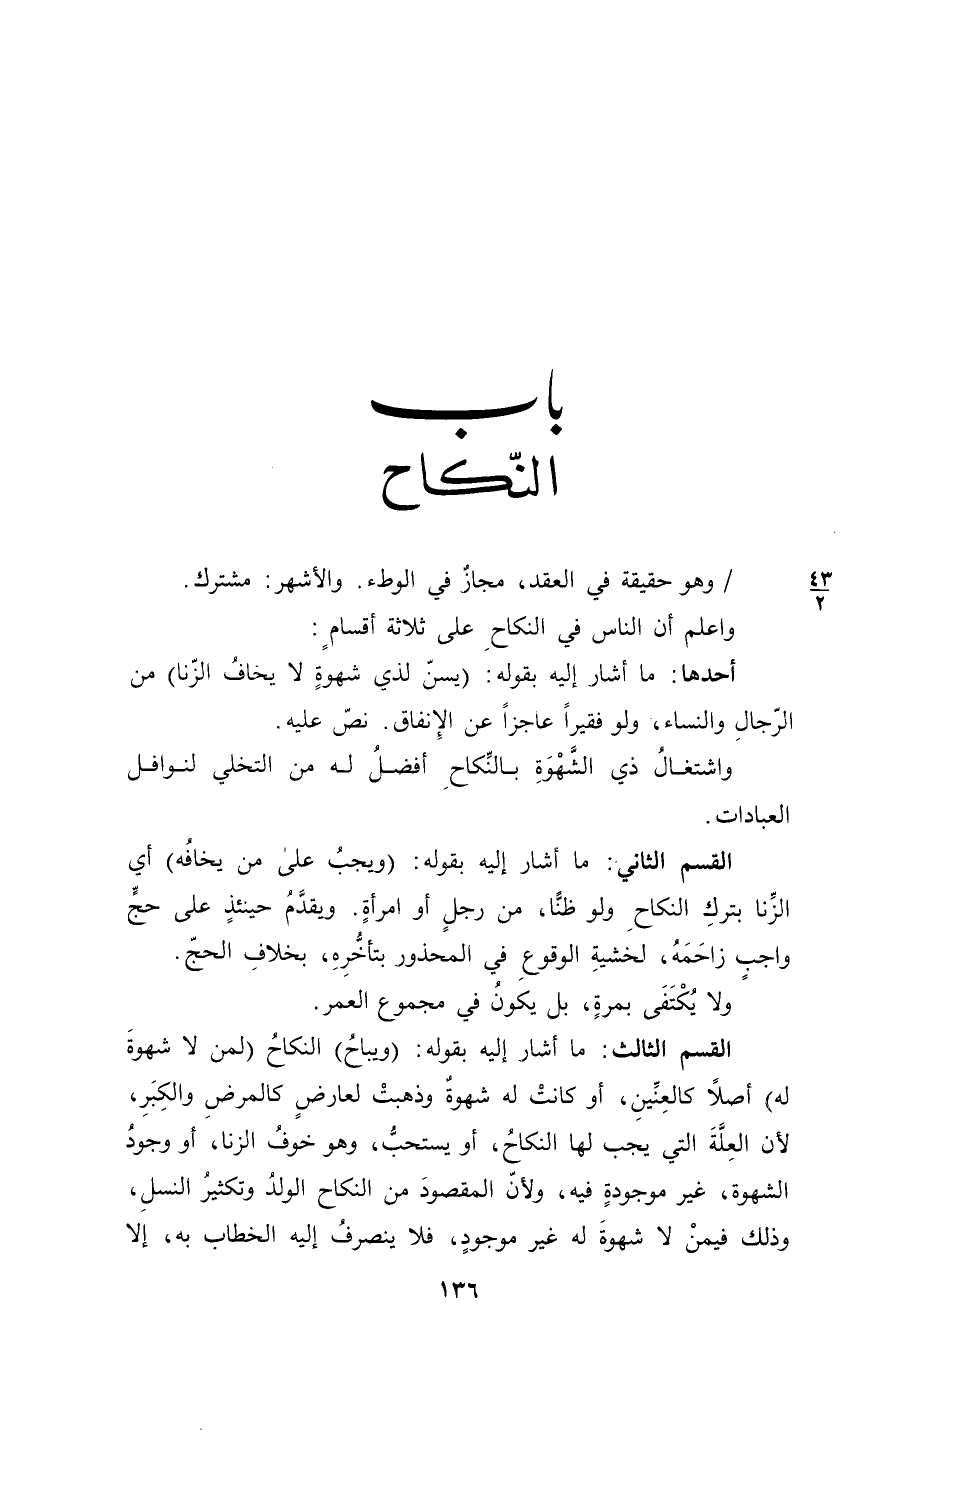 باب
النّكاح
/ وهو حقيقة في العقد، مجازٌ في الوطء. والأشهر: مشترك.
٤٣
٢
واعلم أن الناس في النكاحِ على ثلاثة أقسامٍ:
أحدها: ما أشار إليه بقوله: (يسنّ لذي شهوةٍ لا يخافُ الزّنا) من
الرّجالِ والنساء، ولو فقيراً عاجزاً عن الإنفاق. نصّ عليه.
واشتغـالُ ذي الشَّهْوَةِ بـالنِّكاحِ أفضـلُ لـه من التخلي لنـوافـل
العبادات.
القسم الثاني: ما أشار إليه بقوله: (ويجبُ علىٰ من يخافُه) أي
الزِّنا بتركِ النكاحِ ولو ظنًّا، من رجلٍ أو امرأةٍ. ويقدَّمُ حينئذٍ على حجٍّ
واجبٍ زاحَمَهُ، لخشيةِ الوقوعِ في المحذور بتأخُّرِهِ، بخلافِ الحجّ.
ولا يُكْتَفَى بمرةٍ، بل يكونُ في مجموع العمر.
القسم الثالث: ما أشار إليه بقوله: (ويباحُ) النكاحُ (لمن لا شهوةَ
له) أصلًا كالعِنِّينِ، أو كانتْ له شهوةٌ وذهبتْ لعارضٍ كالمرضِ والكِبَرِ،
لأن العِلَّةَ التي يجب لها النكاحُ، أو يستحبُّ، وهو خوفُ الزنا، أو وجودُ
الشهوة، غير موجودةٍ فيه، ولأنّ المقصودَ من النكاح الولدُ وتكثيرُ النسلِ،
وذلك فيمنْ لا شهوةَ له غير موجودٍ، فلا ينصرفُ إليه الخطاب به، إلا
١٣٦